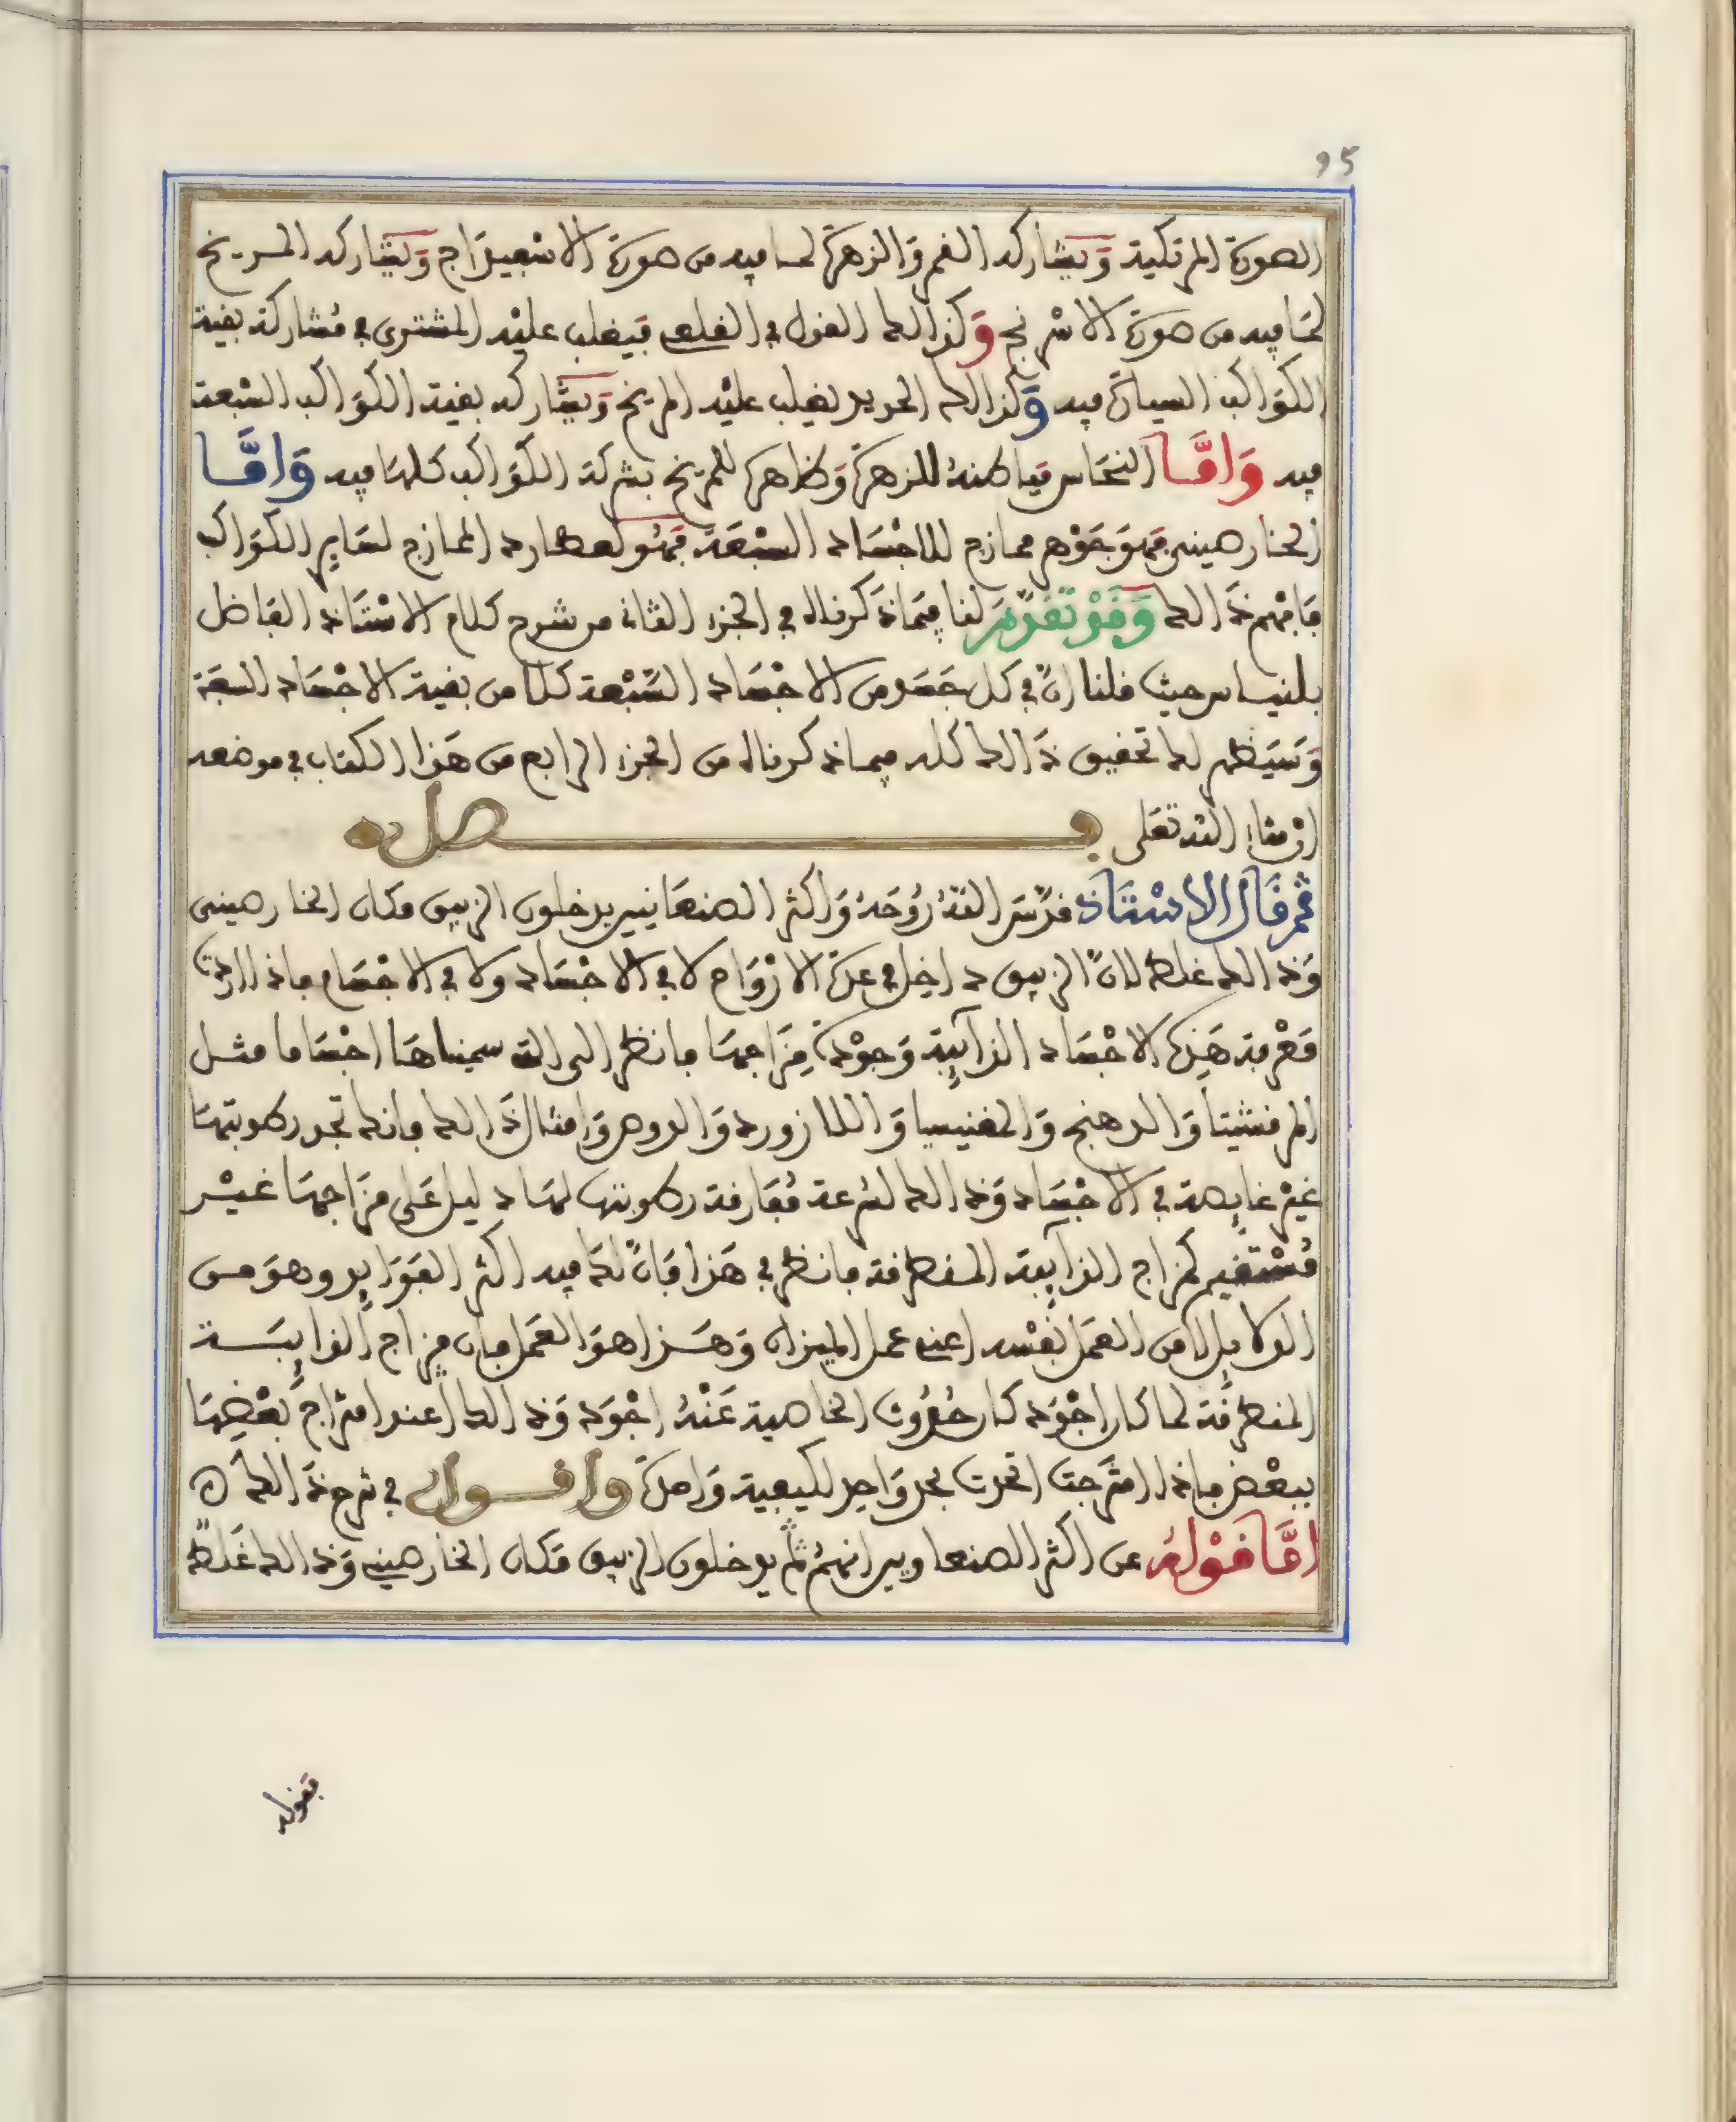 95
الصورة المرتكية وَيشاركه القمر وَالزهرة لما فيه من صورة الاسْفيذَاج وَيشاركه المريخ
لمَا فيه من صورة الاسْرنج وَكذالك القول في القلعي فيغلب عليْه المشتري في مُشاركة بقية
الكوَاكب السيارة فيه وَكذالك الحديد يغلب عليْه المريخ وَيشاركه بقية الكوَاكب السّبعة
فيه وَامَّا النحَاس فباطنهُ للزهرة وَظاهره للمريخ بشركة الكوَاكب كلهَا فيه وَامَّا
الخارصيني فهوَ جَوْهر ممازج للاجْسَاد السبْعَة فهُو لعطارد الممازج لسَايِر الكوَاكب
فافْهم ذَالك وَقَدْ تَقَدَّمَ لنا فِيمَا ذكرناه في الجزء الثاني من شرح كلام الاسْتَاذ الفاضل
بلنياس حيث قلنا انّ في كل جَسَد من الاجْسَاد السَّبْعة كلا من بقية الاجْسَاد السبعَة
وَسَيَظهر لك تحقيق ذَالك كله فيما ذكرناه من الجزء الرابع من هَذا الكتاب في موضعه
انْ شاء الله تعَلى فصل
ثم قَال الاسْتَاذ قدّسَ اللهُ رُوحَهُ وَاكثر الصنعَانيين يدخلون الزيبق مكان الخارصيني
وَذالك غلط لانّ الزيبق داخِل في عدة الارْوَاح لا في الاجْسَاد ولا في الاجْسَام فاذا اردتَ
مَعْرفة هَذِه الاجْسَاد الذآيِبَة وَجوْدةَ مِزَاجهَا فانظر الى التي سميناهَا اجْسَاما مثل
المرقشيثا وَالدهنج وَالمغنيسيا وَاللازورد وَالدوص وَامثال ذَالك فانك تجد رطوبتهَا
غيْر غايصة في الاجْسَاد وَذالك لسُرعة مُفَارقة رطوبتها لهَا دليل عَلى مزَاجهَا غيْر
مُسْتَقيم كمزاج الذآيبة المنطرقة فانظر في هَذا فانّ لكَ فيه اكثر الفوَايد وهوَ من
الدلايل لا من العمَل نفْسه اعني عمل الميزان وَهَذا هوَ العمَل فان مِزاج الذايِبَة
المنطرقَة لما كان اجْوَد كان حُدُوث الخاصية عَنْهُ اجْوَد وَذالك عند امتزاج بعْضِهَا
ببعْض فاذا امتَزجت اتحدت بحد وَاحِد لكيفية وَاحدة وَاقول في شرح ذَالك ه
امَّا قوْلهُ عن اكثر الصنعاويين انهمُ ثمّ يدخلون الزيبق مَكان الخارصيني وَذالك غَلط
فقوله